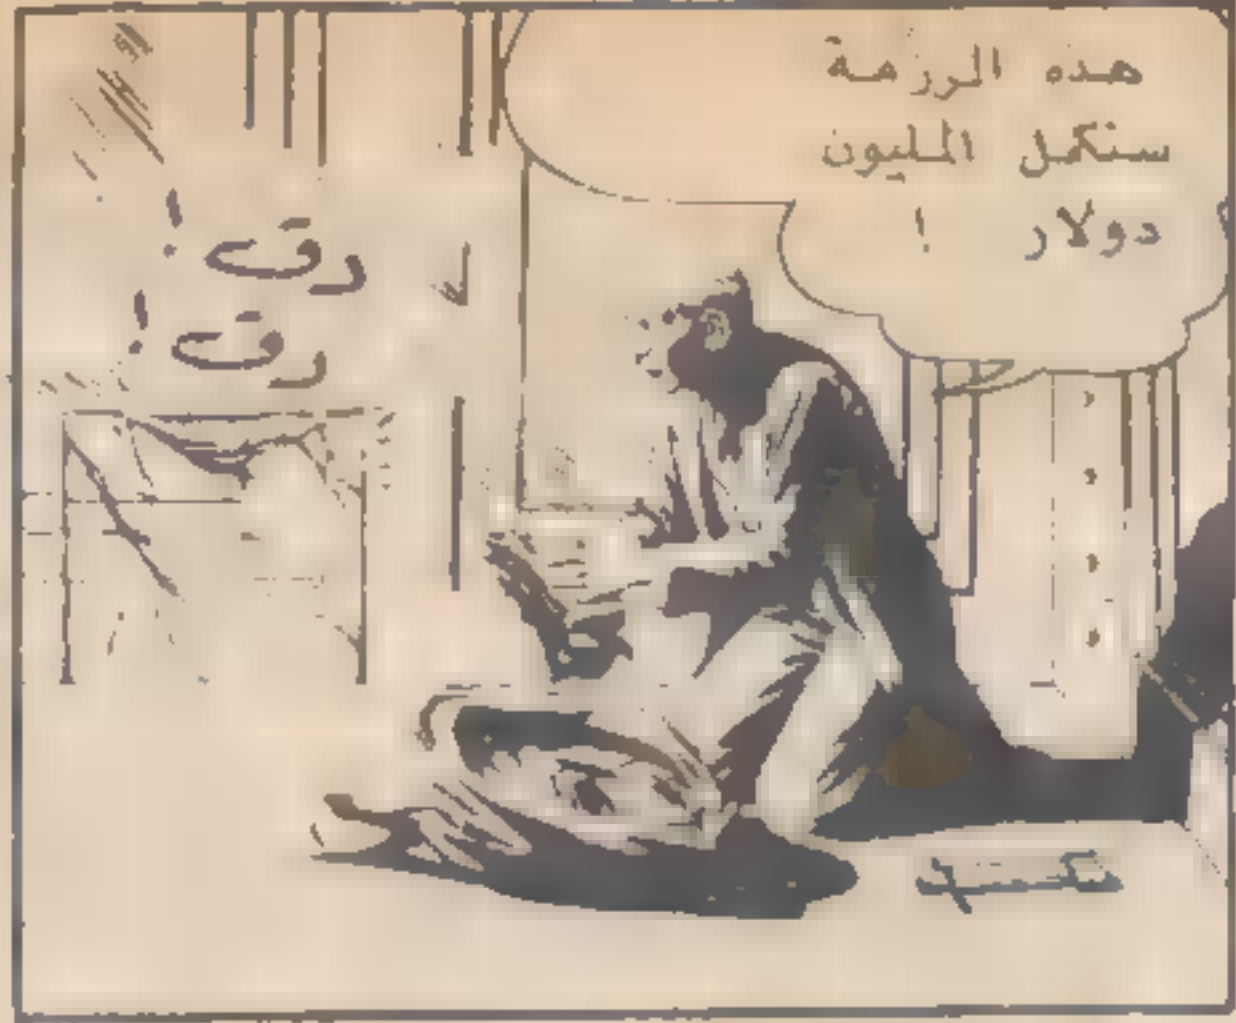 هذه الرزمة
ستكمل المليون
دولار !
رق !
رق !